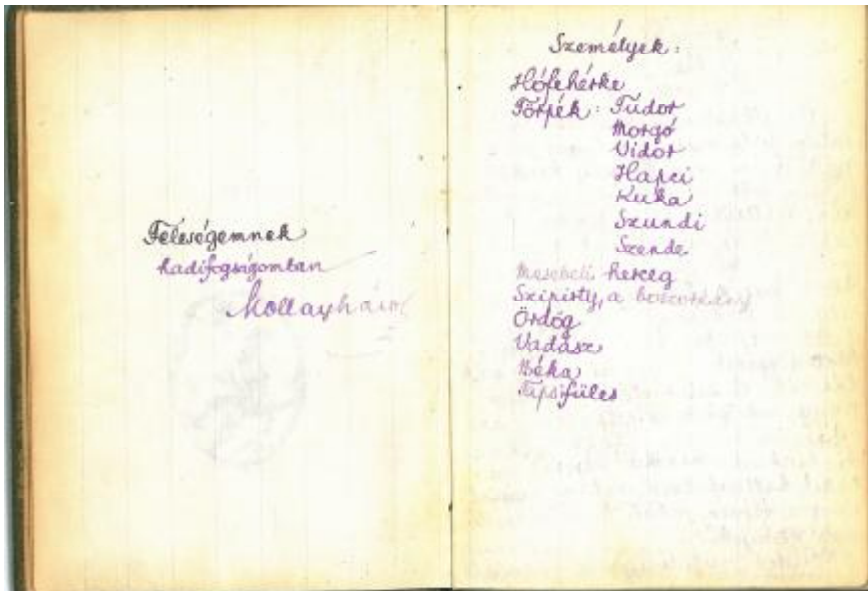 Feleségemnek
hadifogságomban
Mollay Károly
Személyek:
Hófehérke
Törpék: Tudor
Morgó
Vidor
Hapci
Kuka
Szundi
Szende
Mesebeli herceg
Szipirty, a boszorkány
Ördög
Vadász
Béka
Tapsifüles